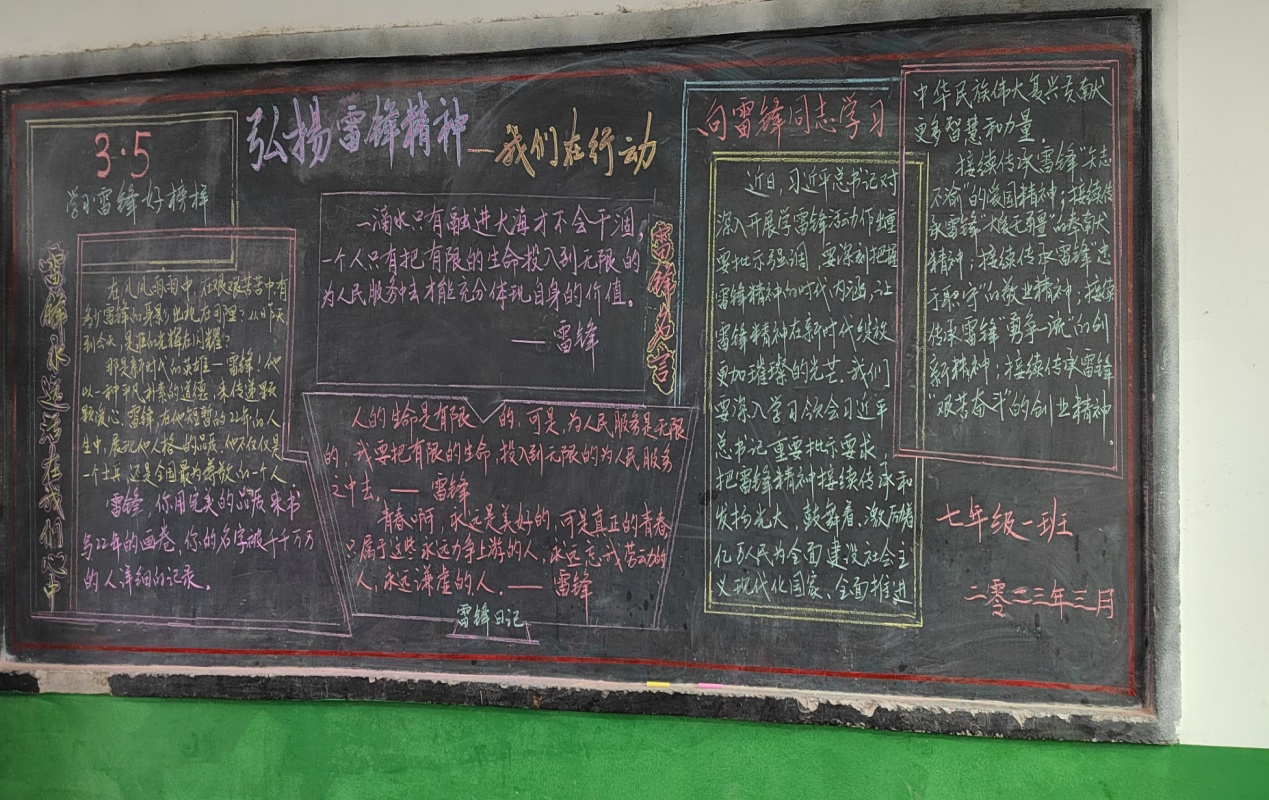 弘扬雷锋精神
—我们在行动
3·5
学习雷锋好榜样
雷锋永远活在我们心中
在风风雨雨中，在艰难苦苦中有
多少雷锋的身影出现在可理？从昨天
到今天，是谁的光辉在闪耀？
那是新时代的英雄—雷锋！他
以一种平凡朴素的道德，来传递颗
颗爱心。雷锋在他短暂的22年的人
生中，展现他人格的品质，他不仅仅是
一个士兵，还是全国最可尊敬的一个人
雷锋，你用完美的品质来书
写22年的画卷，你的名字被千千万万
的人详细的记录。
一滴水只有融进大海才不会干涸，
一个人只有把有限的生命投入到无限的
为人民服务中去才能充分体现自身的价值。
——雷锋
雷锋名言
人的生命是有限的，可是，为人民服务是无限
的，我要把有限的生命，投入到无限的为人民服务
之中去。——雷锋
青春啊，永远是美好的，可是真正的青春，
只属于这些永远力争上游的人，永远忘我劳动的
人，永远谦虚的人。——雷锋
雷锋日记
向雷锋同志学习
近日，习近平总书记对
深入开展学雷锋活动作出重
要批示强调，要深刻把握
雷锋精神的时代内涵，让
雷锋精神在新时代绽放
更加璀璨的光芒。我们
要深入学习领会习近平
总书记重要批示要求，
把雷锋精神接续传承和
发扬光大，鼓舞着、激励着
亿万人民为全面建设社会主
义现代化国家、全面推进
中华民族伟大复兴贡献
更多智慧和力量。
接续传承雷锋“矢志
不渝”的爱国精神；接续传
承雷锋“大爱无疆”的奉献
精神；接续传承雷锋“忠
于职守”的敬业精神；接续
传承雷锋“勇争一流”的创
新精神；接续传承雷锋
“艰苦奋斗”的创业精神。
七年级一班
二零二三年三月